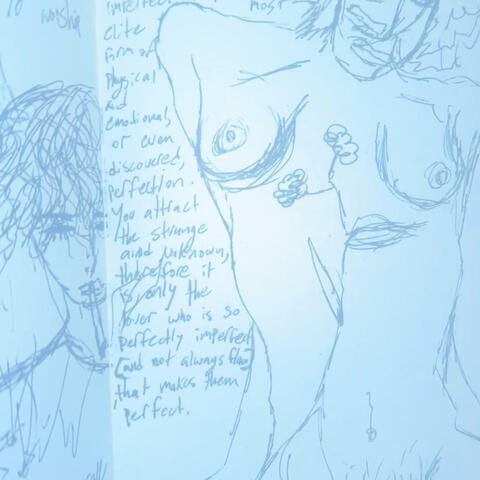 worship
imperfect
elite
form of
physical
and
emotional,
or even
discovered,
perfection.
You attract
the strange
and unknown,
therefore it
is only the
lover who is so
perfectly imperfect
(and not always
that makes them
perfect.
most